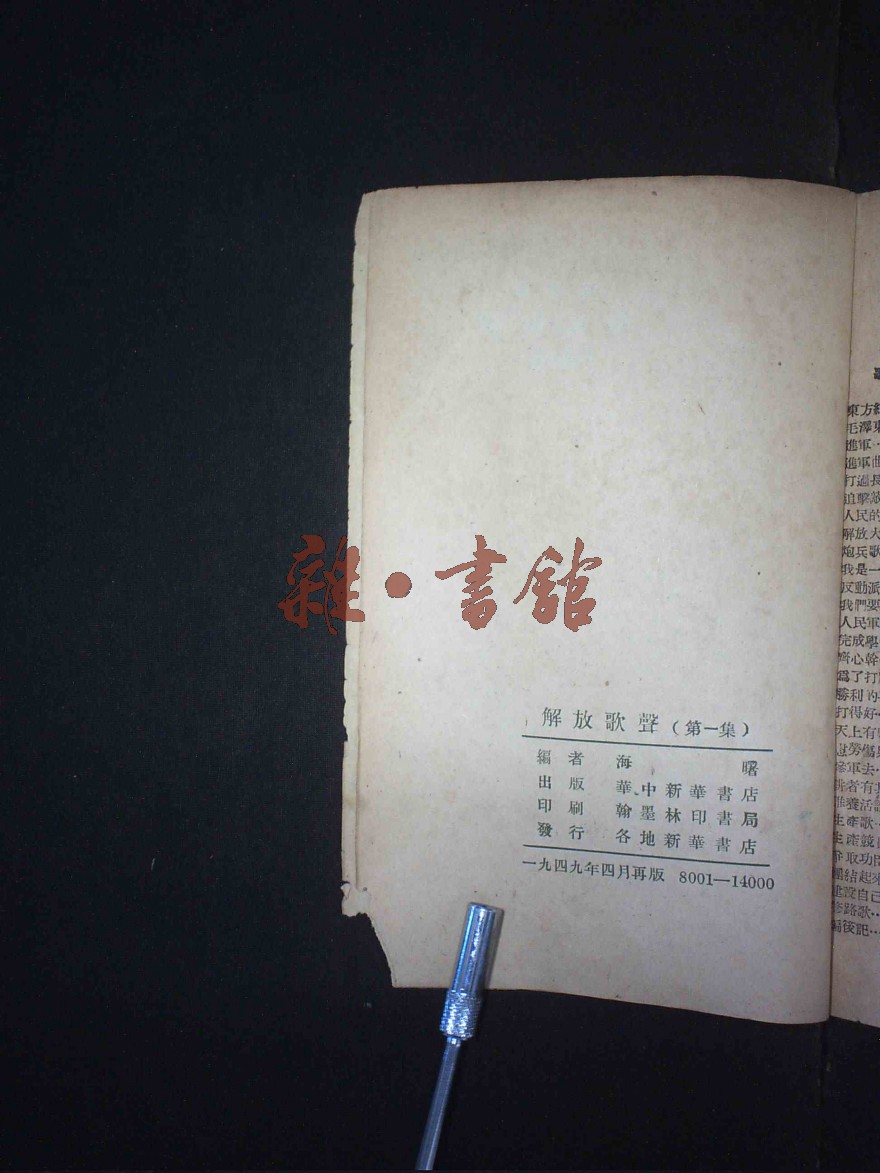 雜·書館
解放歌聲(第一集)
編者 海曙
出版 華中新華書店
印刷 翰墨林印書局
發行 各地新華書店
一九四九年四月再版 8001—14000
東方紅
毛澤東
進軍·
進軍曲
打過長
追擊敵
人民的
解放大
炮兵歌
我是一
反動派
我們要
人民軍
完成學
齊心幹
爲了打
勝利的
打得好·
天上有
慰勞傷
參軍去··
生產歌··
生產競
團結起來
建設自己
修路歌··
編後記···